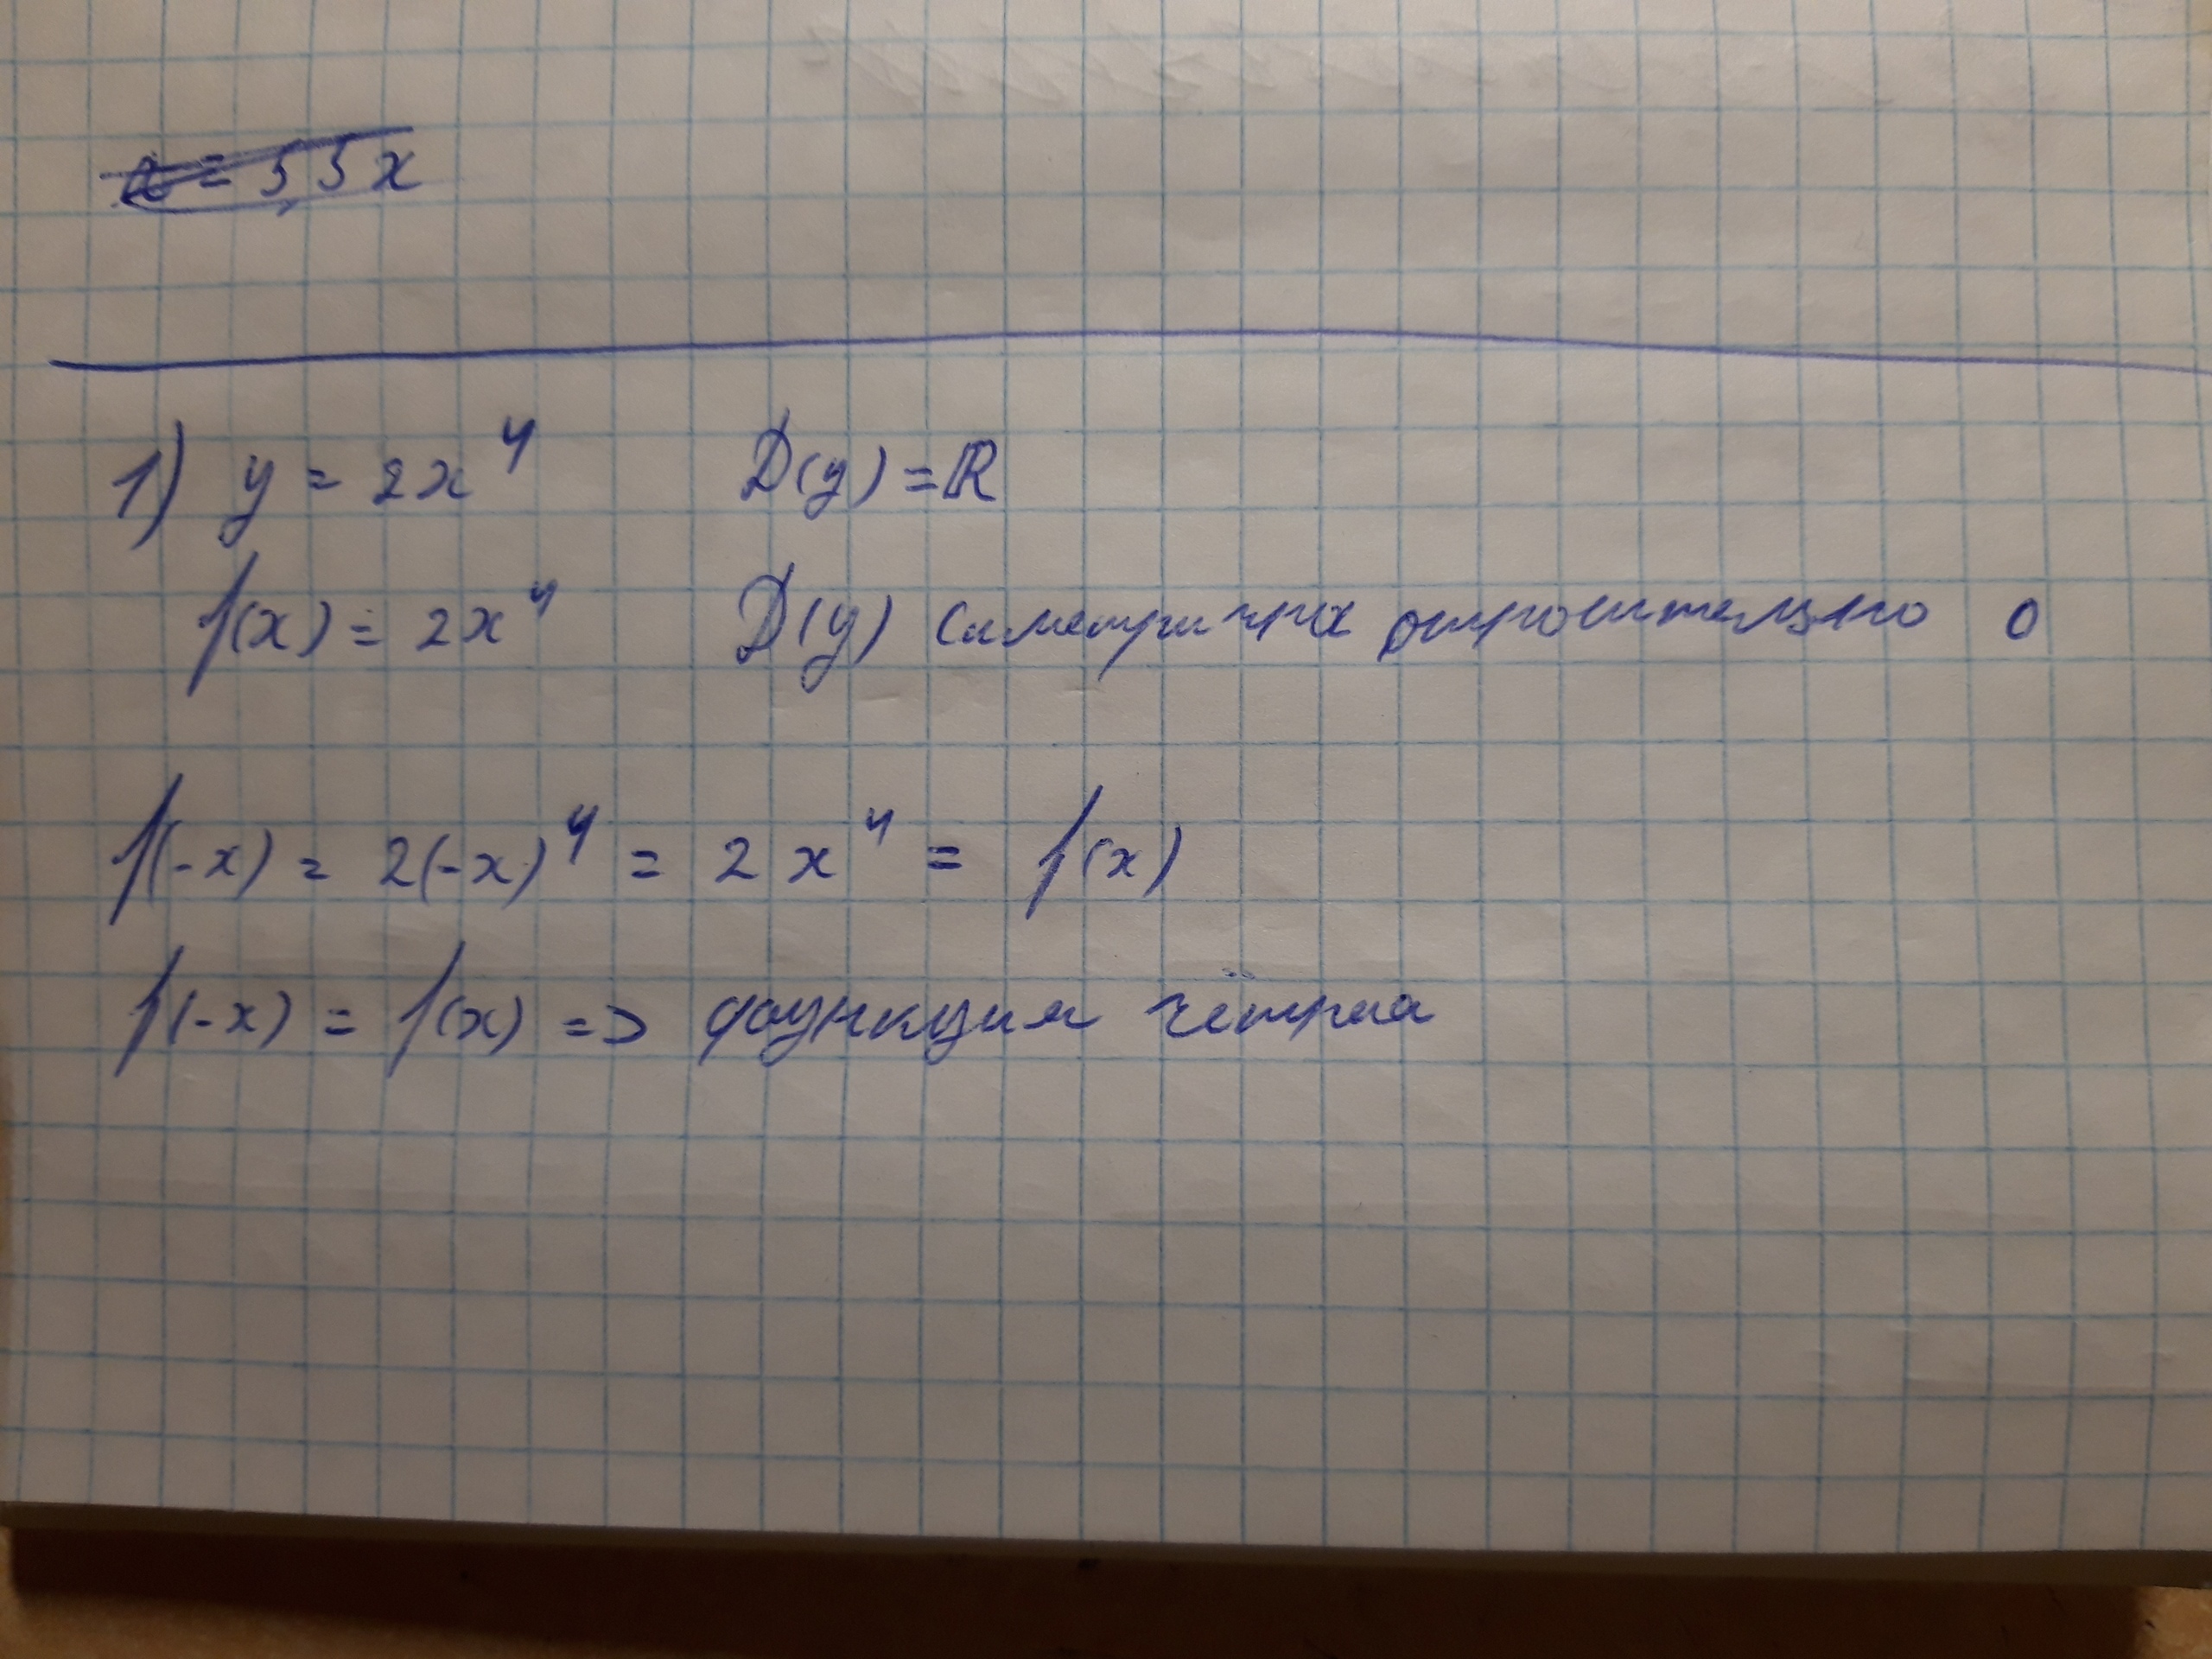 a = 5,5x
1) y = 2x⁴ D(y) = ℝ
f(x) = 2x⁴ D(y) симетрична относительно 0
f(-x) = 2(-x)⁴ = 2x⁴ = f(x)
f(-x) = f(x) => функция чётная